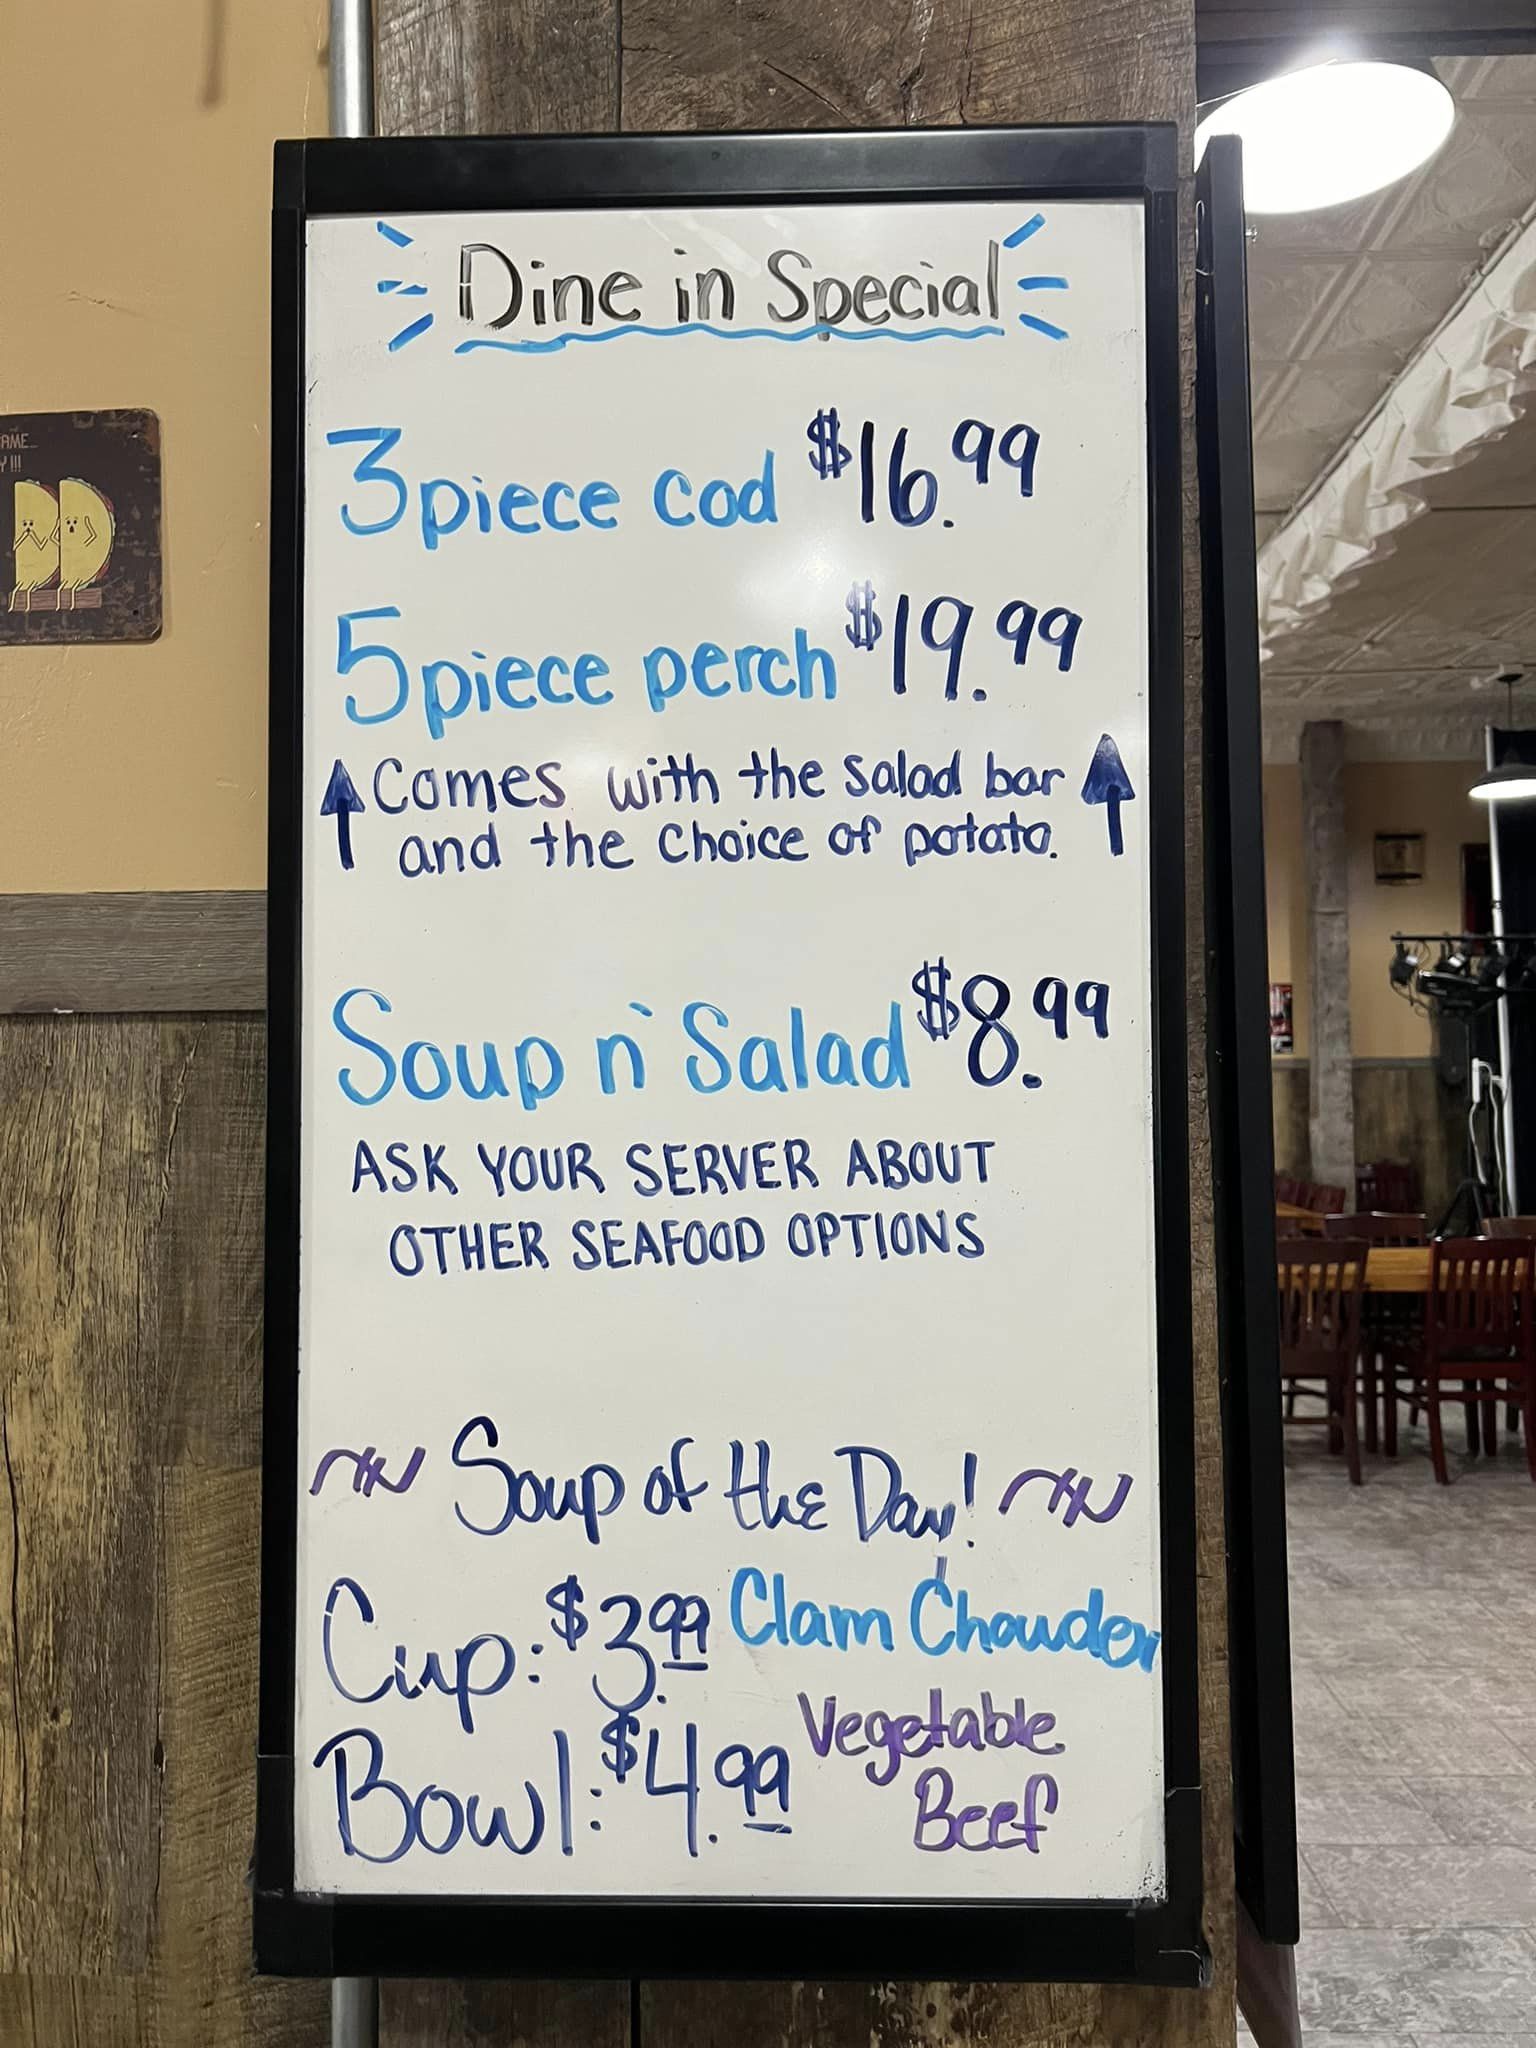 AME..
Y!!!
Dine in Special
3 piece cod $16.99
5 piece perch $19.99
Comes with the salad bar
and the choice of potato.
Soup n' Salad $8.99
ASK YOUR SERVER ABOUT
OTHER SEAFOOD OPTIONS
Soup of the Day!
Cup: $3.99 Clam Chowder
Bowl: $4.99 Vegetable
Beef